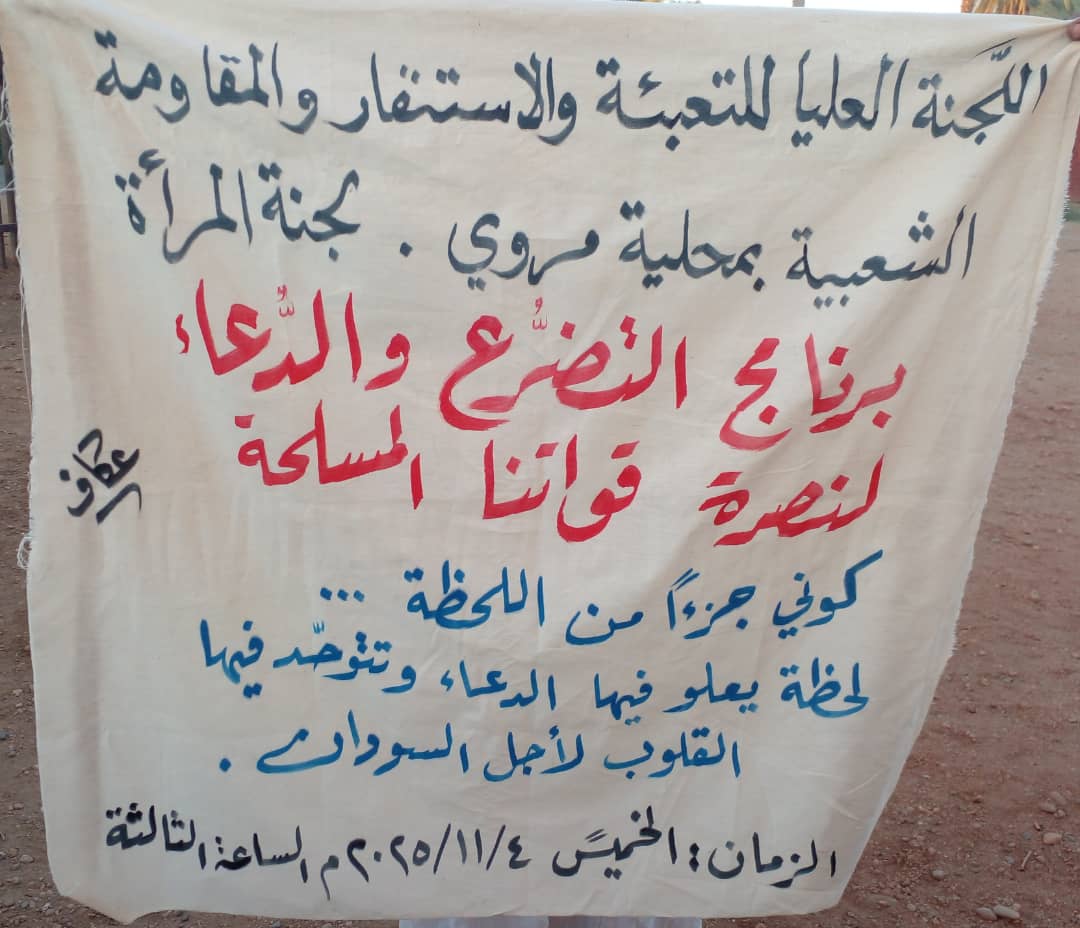 اللَّجنة العليا للتعبئة والاستنفار والمقاومة
الشعبية بمحلية مروي . لجنة المرأة
برنامج التضرُّع والدُّعاء
لنصرة قواتنا المسلحة
عكاف
كوني جزءاً من اللحظة ...
لحظة يعلو فيها الدعاء وتتوحّد فيها
القلوب لأجل السودان .
الزمان : الخميس ٢٠٢٥/١١/٤م الساعة الثالثة